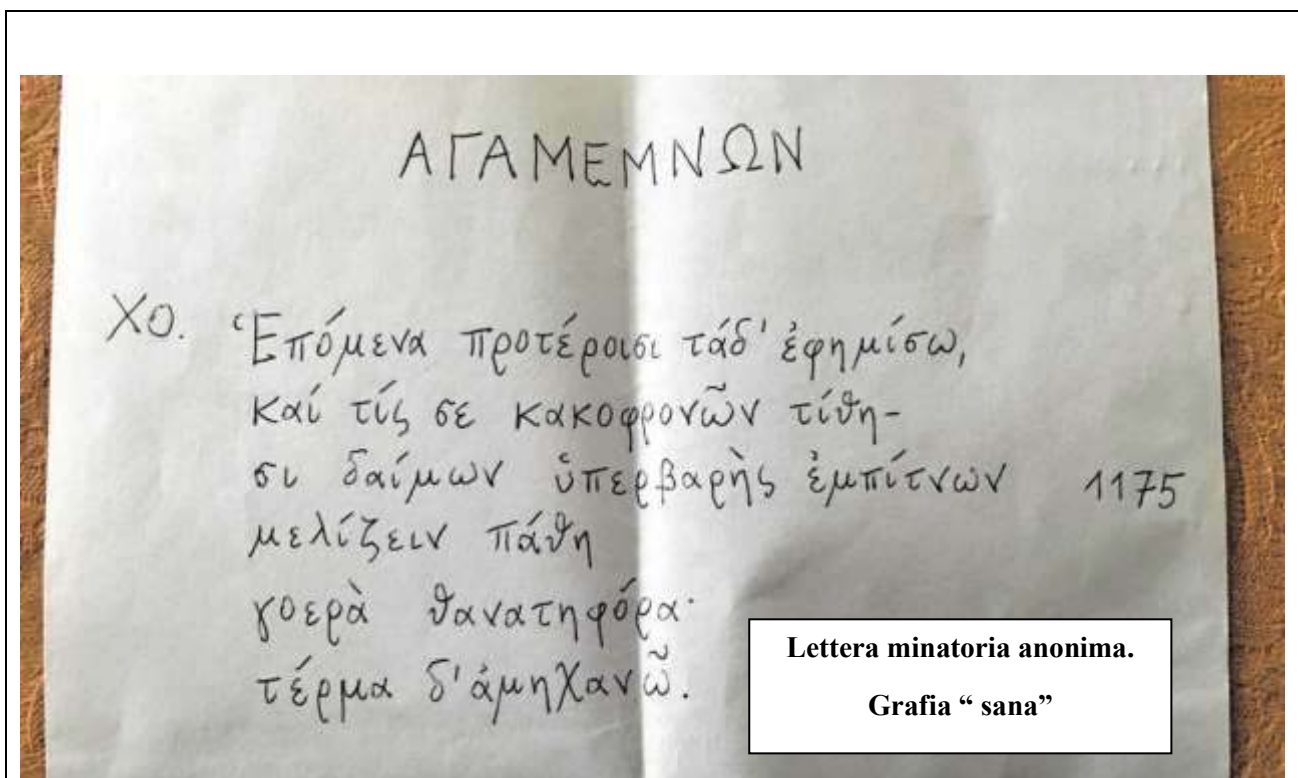 ΑΓΑΜΕΜΝΩΝ
ΧΟ. Ἑπόμενα προτέροισι τάδ' ἐφημίσω,
καί τίς σε κακοφρονῶν τίθη-
σι δαίμων ὑπερβαρὴς ἐμπίτνων 1175
μελίζειν πάθη
γοερὰ θανατηφόρα·
τέρμα δ' ἀμηχανῶ.
Lettera minatoria anonima.
Grafia “ sana”